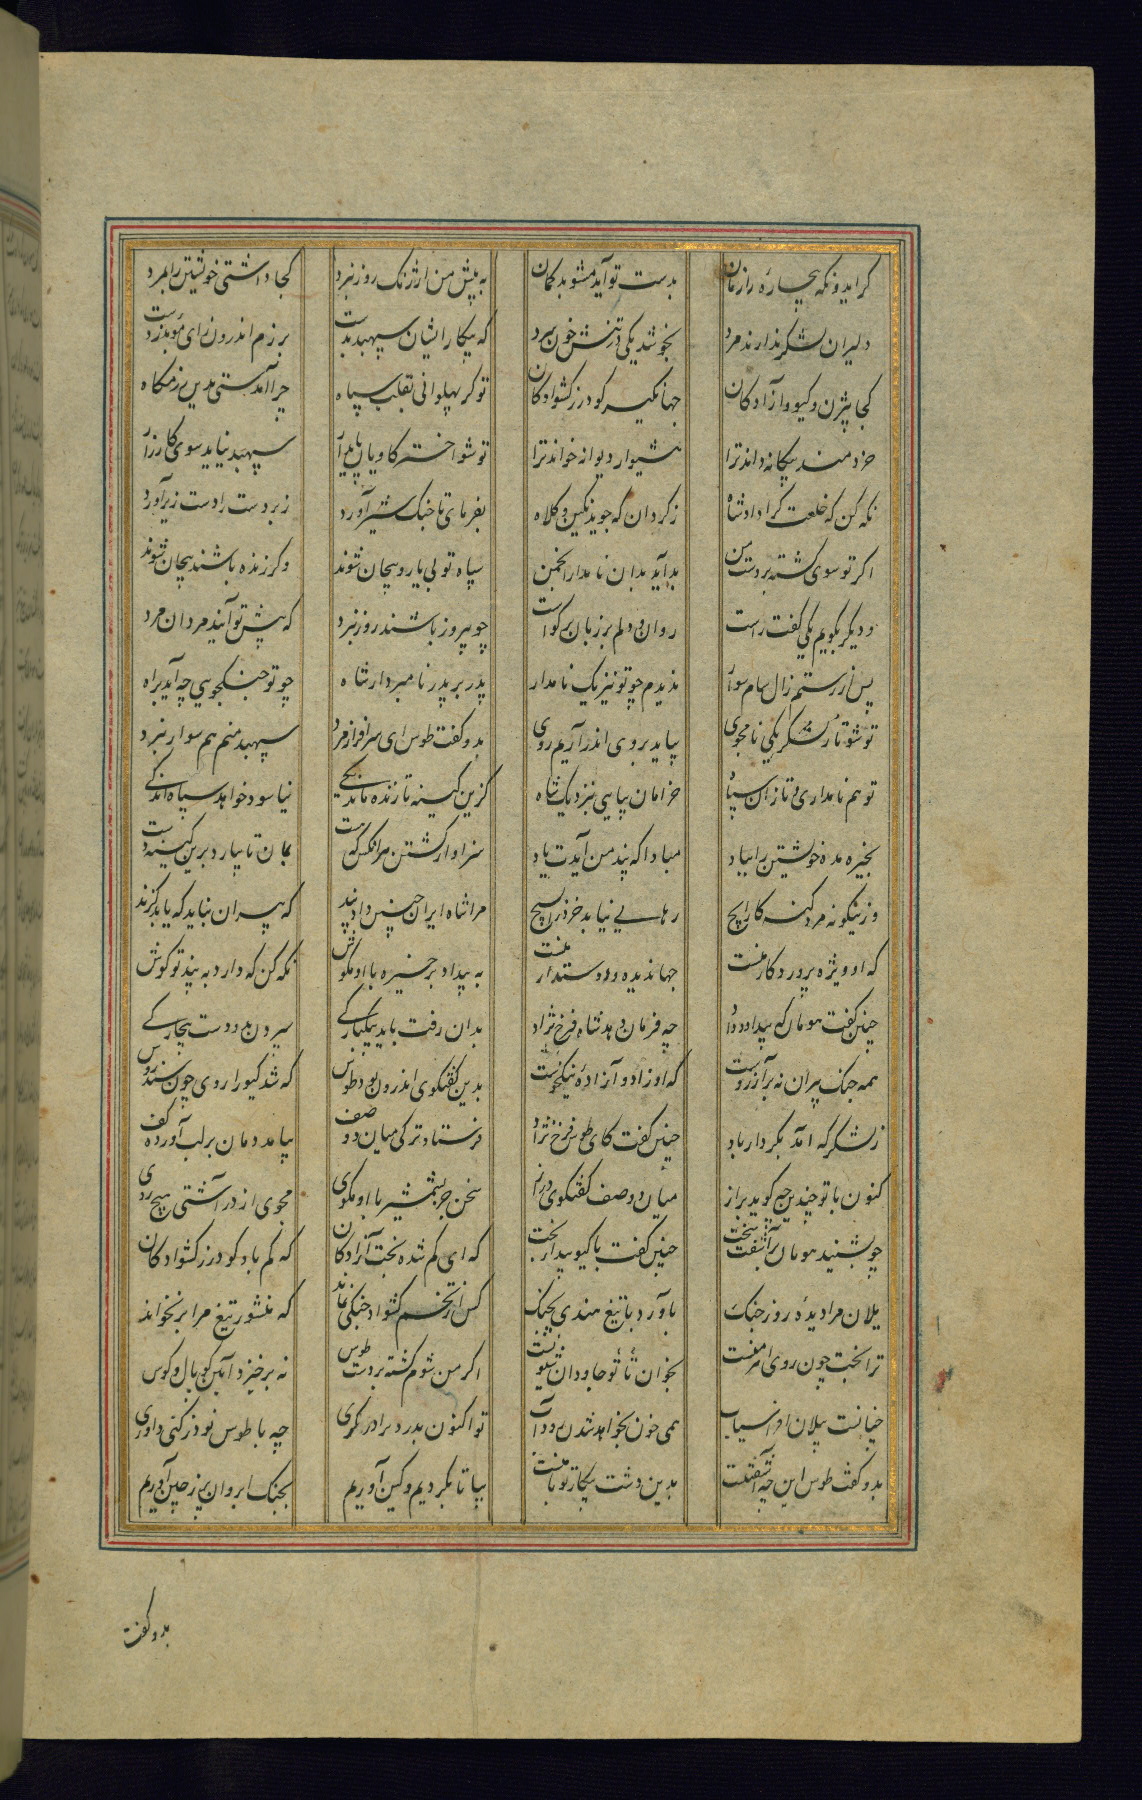 گر ایدونکه بیچاره را زمان بدست تو آید مشو بدگمان به پیش من ارژنگ روز نبرد کجا داشتی خویشتن را بمرد
دلیران لشکر ندارند مرد بخوشد یکی در تنش خون سرد که پیکار ایشان سپهبد بدست برزم اندرون رای موبد زدست
کجا بیژن و گیو و آزادگان جهانگیر گودرز کشوادگان تو گر پهلوانی بقلب سپاه چرا آمدستی بدین رزمگاه
خردمند بیگانه داند ترا هشیوار دیوانه خواند ترا تو شو اختر کاویان پای آر سپهبد نیاید سوی کارزار
نکه کن که خلعت کرا داد شاه ز گردان که جوید نگین و کلاه بفرمای تا جنگ شیر آورد زبر دست را دست زیر آورد
اکر تو سوی کشته بر دست من بد آید بدان نامدار انجمن سپاه تو بی یار و پیچان شوند وگر زنده باشند پیچان شوند
و دیگر بگویم یکی گفت راست روان و دلم بر زبان بر گواست چو پیروز باشند روز نبرد که پیش تو آیند مردان مرد
پس از رستم زال سام سوار ندیدم چو تو نیز یک نامدار پدر بر پدر نامبردار شاه چو تو جنگجویی چه آید براه
تو شو تا ز لشکر یکی نامجوی بیاید بروی اندر آریم روی بدو گفت طوس ای سرافراز مرد سپهبد منم هم سوار نبرد
تو هم نامداری ز توران سپاه خرامان بیایی بنزدیک شاه کزین کینه تا زنده ماند یکی نیاسود خواهد سپاه اندکی
بخیره مده خویشتن را بباد مبادا که پند من آیدت یاد سزاوار کشتن هرانکس که هست بمان تا بیازد برین کینه دست
وزینگونه مرد گنه کار ایچ رهایی نیابد خرد را مپیچ مرا شاه ایران چنین داد پند که پیران نباید که یابد گزند
که او ویژه پروردگار منست جهاندیده و دوستدار منست به بیداد بر خیره با او مکوش نکه کن که دارد به پند تو گوش
چنین گفت هومان که بیداد و داد چو فرمان دهد شاه فرخ نژاد بدان رفت باید ببیچارگی سپردن بدو دست یکبارگی
همه جنگ پیران نه بر آرزوست که او زاد و آزاده نیکخوست بدین گفتگوی اندرون بود طوس که شد گیو را روی چون سندروس
ز لشکر که آمد بکردار باد چنین گفت کای طوس فرخ نژاد فرستاد ترکی میان دو صف بیامد دمان بر لب آورده کف
کنون با تو چندین چه گوید براز میان دو صف گفتگوی دراز سخن جز بشمشیر با او مگوی مجوی از در آشتی هیچ روی
چو بشنید هومان برآشفت سخت چنین گفت با گیو بیدار بخت که ای گم شده بخت آزادگان که گم باد گودرز کشوادگان
یلان مرا دیده روز جنگ باورد با تیغ هندی بچنگ کس از تخم کشواد جنگی نماند که منشور تیغ مرا بر نخواند
ترا بخت چون روی اهرمنست بخوان تا تو جاودان شیونست اکر من شوم کشته بر دست طوس نه برخیزد آیین گوپال و کوس
بجایست پیلان افراسیاب همی خون بخواهد شدن رود آب تو اکنون بدرد برادر گری چه با طوس نوذر کنی داوری
بدو گفت طوس این چه آشفتنست بدین دشت پیکار تو با منست بیا تا بگردیم و کین آوریم بجنگ ابروان پر ز چین آوریم
بدو گفت